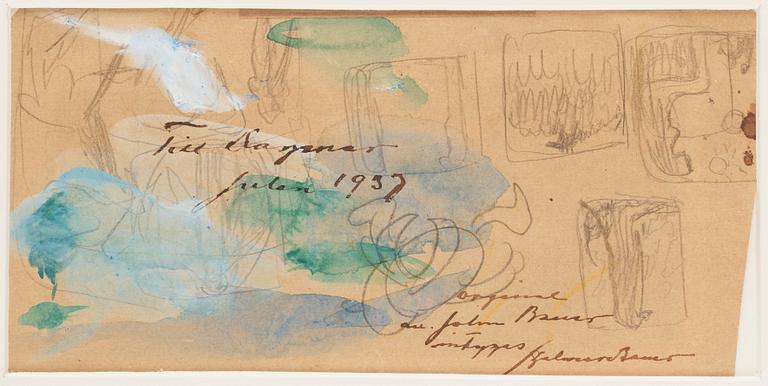 Till Ragnar
Julen 1937
Original
av John Bauer
intygas
Hjalmar Bauer